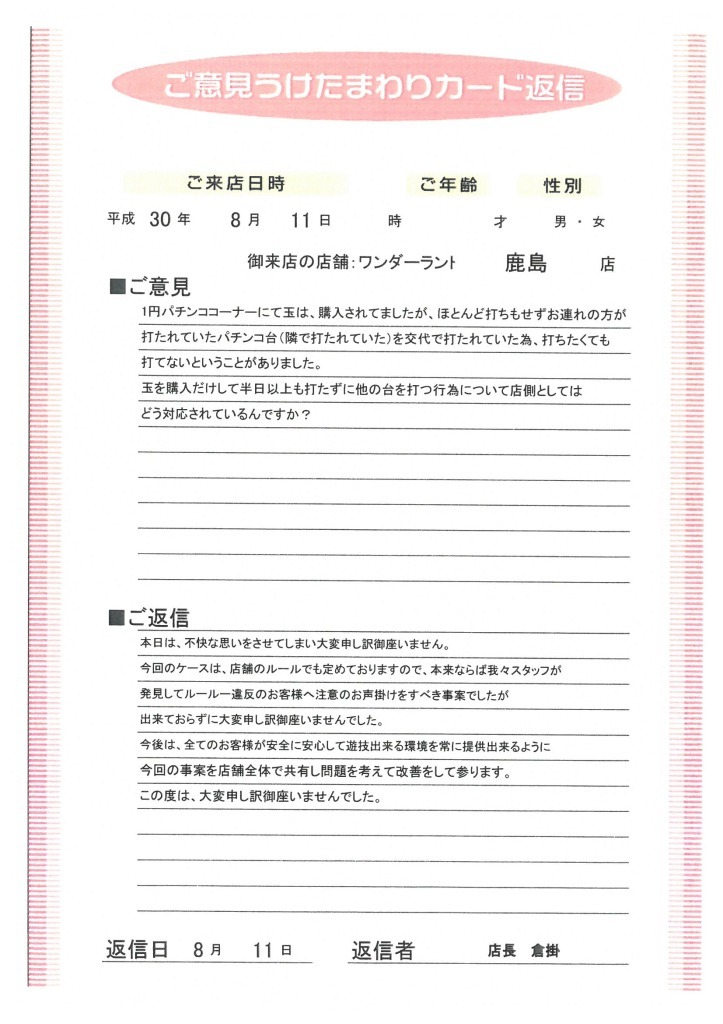 ご意見うけたまわりカード返信
ご来店日時 ご年齢 性別
平成 30 年 8 月 11 日 時 才 男 ・ 女
御来店の店舗：ワンダーラント 鹿島 店
■ご意見
1円パチンココーナーにて玉は、購入されてましたが、ほとんど打ちもせずお連れの方が
打たれていたパチンコ台（隣で打たれていた）を交代で打たれていた為、打ちたくても
打てないということがありました。
玉を購入だけして半日以上も打たずに他の台を打つ行為について店側としては
どう対応されているんですか？
■ご返信
本日は、不快な思いをさせてしまい大変申し訳御座いません。
今回のケースは、店舗のルールでも定めておりますので、本来ならば我々スタッフが
発見してルールー違反のお客様へ注意のお声掛けをすべき事案でしたが
出来ておらずに大変申し訳御座いませんでした。
今後は、全てのお客様が安全に安心して遊技出来る環境を常に提供出来るように
今回の事案を店舗全体で共有し問題を考えて改善をして参ります。
この度は、大変申し訳御座いませんでした。
返信日 8 月 11 日 返信者 店長 倉掛